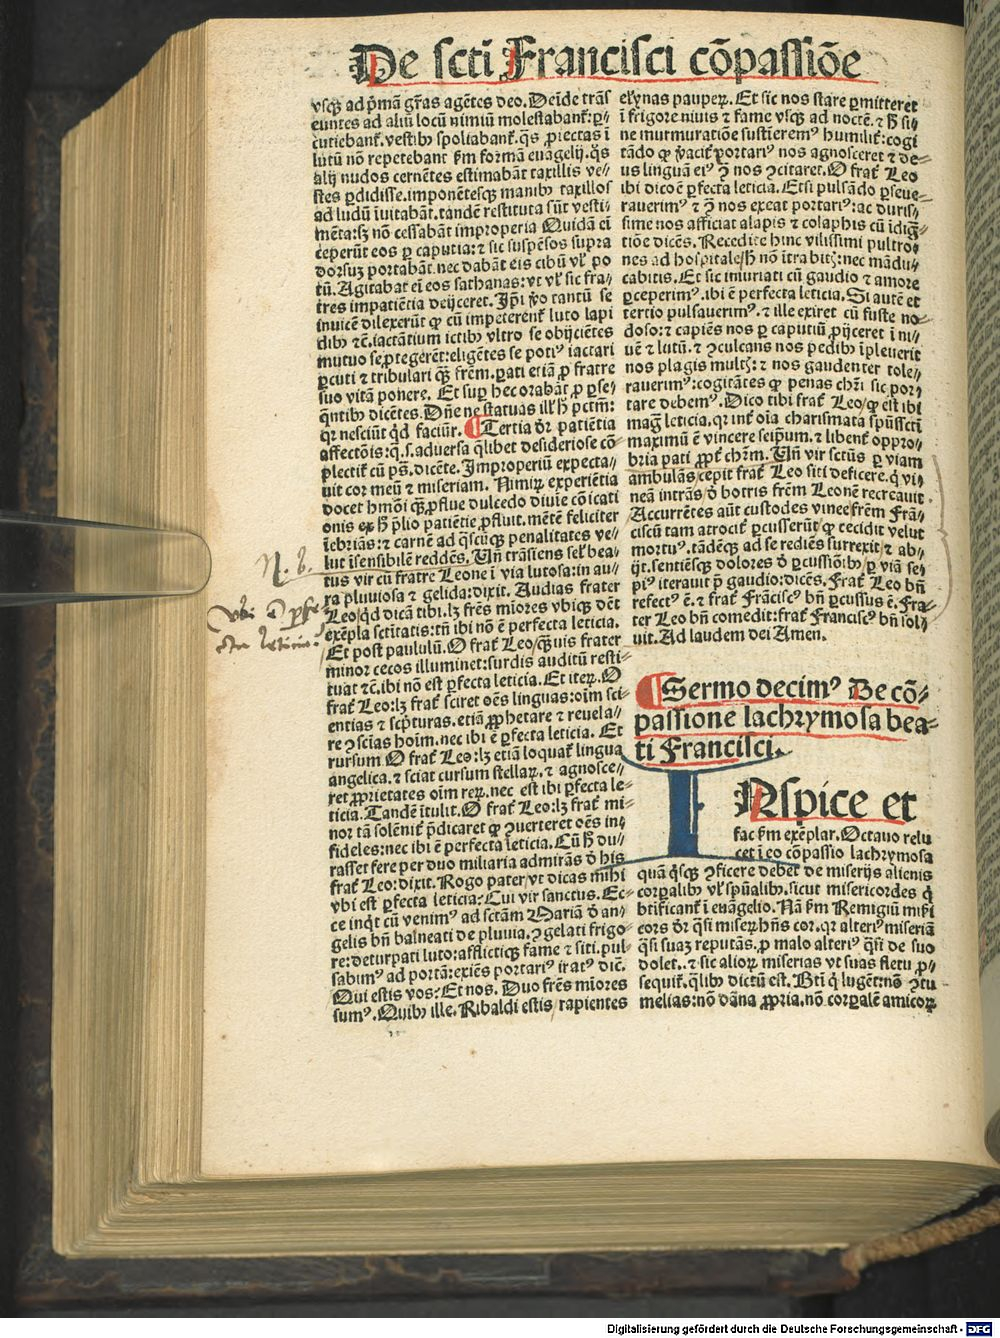 De scti Francisci cōpassiōe
vsq3 ad p̄mā gr̄as agētes deo. Deīde trās
euntes ad aliū locū nimiū molestabant᷑: ꝑ⸗
cutiebant᷑. vestib9 spoliabant᷑. q̄s ꝓiectas ī
lutū nō repetebant ẜm formā euāgelij. q̄s
alij nudos cernētes estimabāt taxillis ve⸗
stes ꝑdidisse. imponētesq3 manib9 taxillos
ad ludū īuitabāt. tandē restituta sūt vesti⸗
mēta: s3 nō cessabāt improperia Quidā eī
ceperūt eos ꝑ caputia: ⁊ sic suspēsos supra
dorsu3 portabāt. nec dabāt eis cibū vl᷑ po
tū. Agitabat eī eos sathanas: vt vl᷑ sic fra⸗
tres impatiētia deijceret. Ip̄i ꝟo tantū se
inuicē dilexerūt ꝙ cū impeterent᷑ luto lapi
dib9 ⁊c̄. iactātium ictib9 vltro se obijciētes
mutuo se ꝓtegerēt: eligētes se poti9 iactari
ꝑcuti ⁊ tribulari q̄3 frēm. ꝑati etiā ꝓ fratre
suo vitā ponere. Et suꝑ hec orabāt ꝓ ꝑse⸗
q̄ntib9 dicētes. Dn̄e ne statuas ill᷑ h̄ pctm̄:
qr nesciūt qd faciūt. Tertia d̄r patiētia
affectōis: q̄.s. aduersa q̄libet desideriose cō⸗
plectit᷑ cū ps̄. dicēte. Improperiū expecta⸗
uit cor meū ⁊ miseriam. Nimiꝝ experiētia
docet hmōi q̄3 ꝓflue dulcedo diuīe cōicati
onis ex h̄ p̄lio patiētie ꝓfluit. mētē feliciter
īebriās: ⁊ carnē ad q̄scūq3 penalitates ve⸗
lut īsensibilē reddēs. Un̄ trāsiens sel᷑ bea⸗
tus vir cū fratre Leone ī via lutosa: in au⸗
ra pluuiosa ⁊ gelida: dixit. Audias frater
Leo/ qd dicā tibi. l3 frēs mīores vbiq3 dēt
exēpla sctītatis: tn̄ ibi nō ē perfecta leticia.
Et post paululū. O frat᷑ Leo/ q̄3uis frater
minor cecos illuminet: surdis auditū resti⸗
tuat ⁊c̄. ibi nō est ꝑfecta leticia. Et iteꝝ. O
frat᷑ Leo: l3 frat᷑ sciret oēs linguas: oīm sci⸗
entias ⁊ scp̄turas. etiā ꝓphetare ⁊ reuela⸗
re ꝯscīas hoīm. nec ibi ē ꝑfecta leticia. Et
rursum O frat᷑ Leo: l3 etiā loquat᷑ lingua
angelica. ⁊ sciat cursum stellaꝝ. ⁊ agnosce⸗
ret ꝓprietates oīm reꝝ. nec est ibi ꝑfecta le⸗
ticia. Tandē ītulit. O frat᷑ Leo: l3 frat᷑ mi⸗
nor tā solēnit᷑ p̄dicaret ꝙ ꝯuerteret oēs in⸗
fideles: nec ibi ē perfecta leticia. Cū h̄ du⸗
rasset fere per duo miliaria admirās d̄ his
frat᷑ Leo: dixit. Rogo pater/ vt dicas mihi
vbi est ꝑfecta leticia? Cui vir sanctus. Ec⸗
ce inqt cū venim9 ad sctām Mariā d̄ an⸗
gelis bn̄ balneati de pluuia. ⁊ gelati frigo⸗
re: deturpati luto: afflictiq3 fame ⁊ siti. pul⸗
sabim9 ad portā: exiēs portari9 irat9 dic̄.
Qui estis vos? Et nos. Duo frēs mīores
sum9. Quib9 ille. Ribaldi estis/ rapientes
elȳnas pauperꝝ. Et sic nos stare ꝑmitteret
ī frigore niuis ⁊ fame vsq3 ad noctē. ⁊ h̄ si⸗
ne murmuratiōe sustīerem9 humilit᷑: cogi
tādo ꝙ ꝟacit᷑ portari9 nos agnosceret ⁊ de⸗
us linguā ei9 ꝯ̄ nos ꝯcitaret. O frat᷑ Leo
ibi dicoē ꝑfecta leticia. Etsi pulsādo ꝑseue⸗
rauerim9 ⁊ ꝯ̄ nos exeat portari9: ac duris⸗
sime nos afficiat alapis ⁊ colaphis cū īdig⸗
tiōe dicēs. Recedite hinc vilissimi pultro⸗
nes ad hospitale/ h̄ nō ītrabit3: nec mādu⸗
cabitis. Et sic iniuriati cū gaudio ⁊ amore
ꝑceperim9. ibi ē perfecta leticia. Si autē et
tertio pulsauerim9. ⁊ ille exiret cū fuste no⸗
doso: ⁊ capiēs nos ꝑ caputiū ꝓijceret ī ni⸗
uē ⁊ lutū. ⁊ ꝯculcans nos pedib9 īpleuerit
nos plagis mult3: ⁊ nos gaudenter tole⸗
rauerim9: cogitātes ꝙ penas chr̄i sic por⸗
tare debem9. Dico tibi frat᷑ Leo/ ꝙ est ibi
mag᷑ leticia. qr int᷑ oīa charismata spūssctī
maximū ē vincere seip̄um. ⁊ libent᷑ oppro⸗
bria pati ꝓpt᷑ chr̄m. Un̄ vir sctūs ꝑ viam
ambulās/ cepit frat᷑ Leo siti deficere. q̇ vi⸗
neā intrās/ d̄ botris frēm Leonē recreauit.
Accurrētes aūt custodes vinee frēm Frā⸗
ciscū tam atrocit᷑ ꝑcusserūt/ ꝙ cecidit velut
mortu9. tādēq3 ad se rediēs surrexit/ ⁊ ab⸗
ijt. sentiēsq3 dolores d̄ ꝑcussiōib9/ ꝑ viā se⸗
pi9 iterauit p̄ gaudio: dicēs. Frat᷑ Leo bn̄
refect9 ē. ⁊ frat᷑ Frācisc9 bn̄ ꝑcussus ē. Fra⸗
ter Leo bn̄ comedit: frat᷑ Francisc9 bn̄ sol⸗
uit. Ad laudem dei Amen.
Sermo decim9 De cō⸗
passione lachrymosa bea⸗
ti Francisci.
INspice et
fac ẜm exēplar. Octauo relu
cet ī eo cōpassio lachrymosa
quā q̇sq3 ꝯficere debet de miserijs alienis
corꝑalib9 vl᷑ spūalib9. sicut misericordes q̇
btīficant᷑ ī euāgelio. Nā ẜm Remigiū misi
cors d̄r q̄si miseꝝ hn̄s cor. qr alteri9 miseriā
q̄si sua3 reputās. ꝓ malo alteri9 q̄si de suo
dolet. ⁊ sic alioꝝ miserias vt suas fletu ꝓ⸗
sequit᷑. q̄lib9 dictū est. Bt̄i q̇ lugēt: nō ꝯtu
melias: nō dāna ꝓpria. nō corꝑalē amicoꝝ
N. b.
vbi ē perfe⸗
cta leticia.
Digitalisierung gefördert durch die Deutsche Forschungsgemeinschaft - DFG